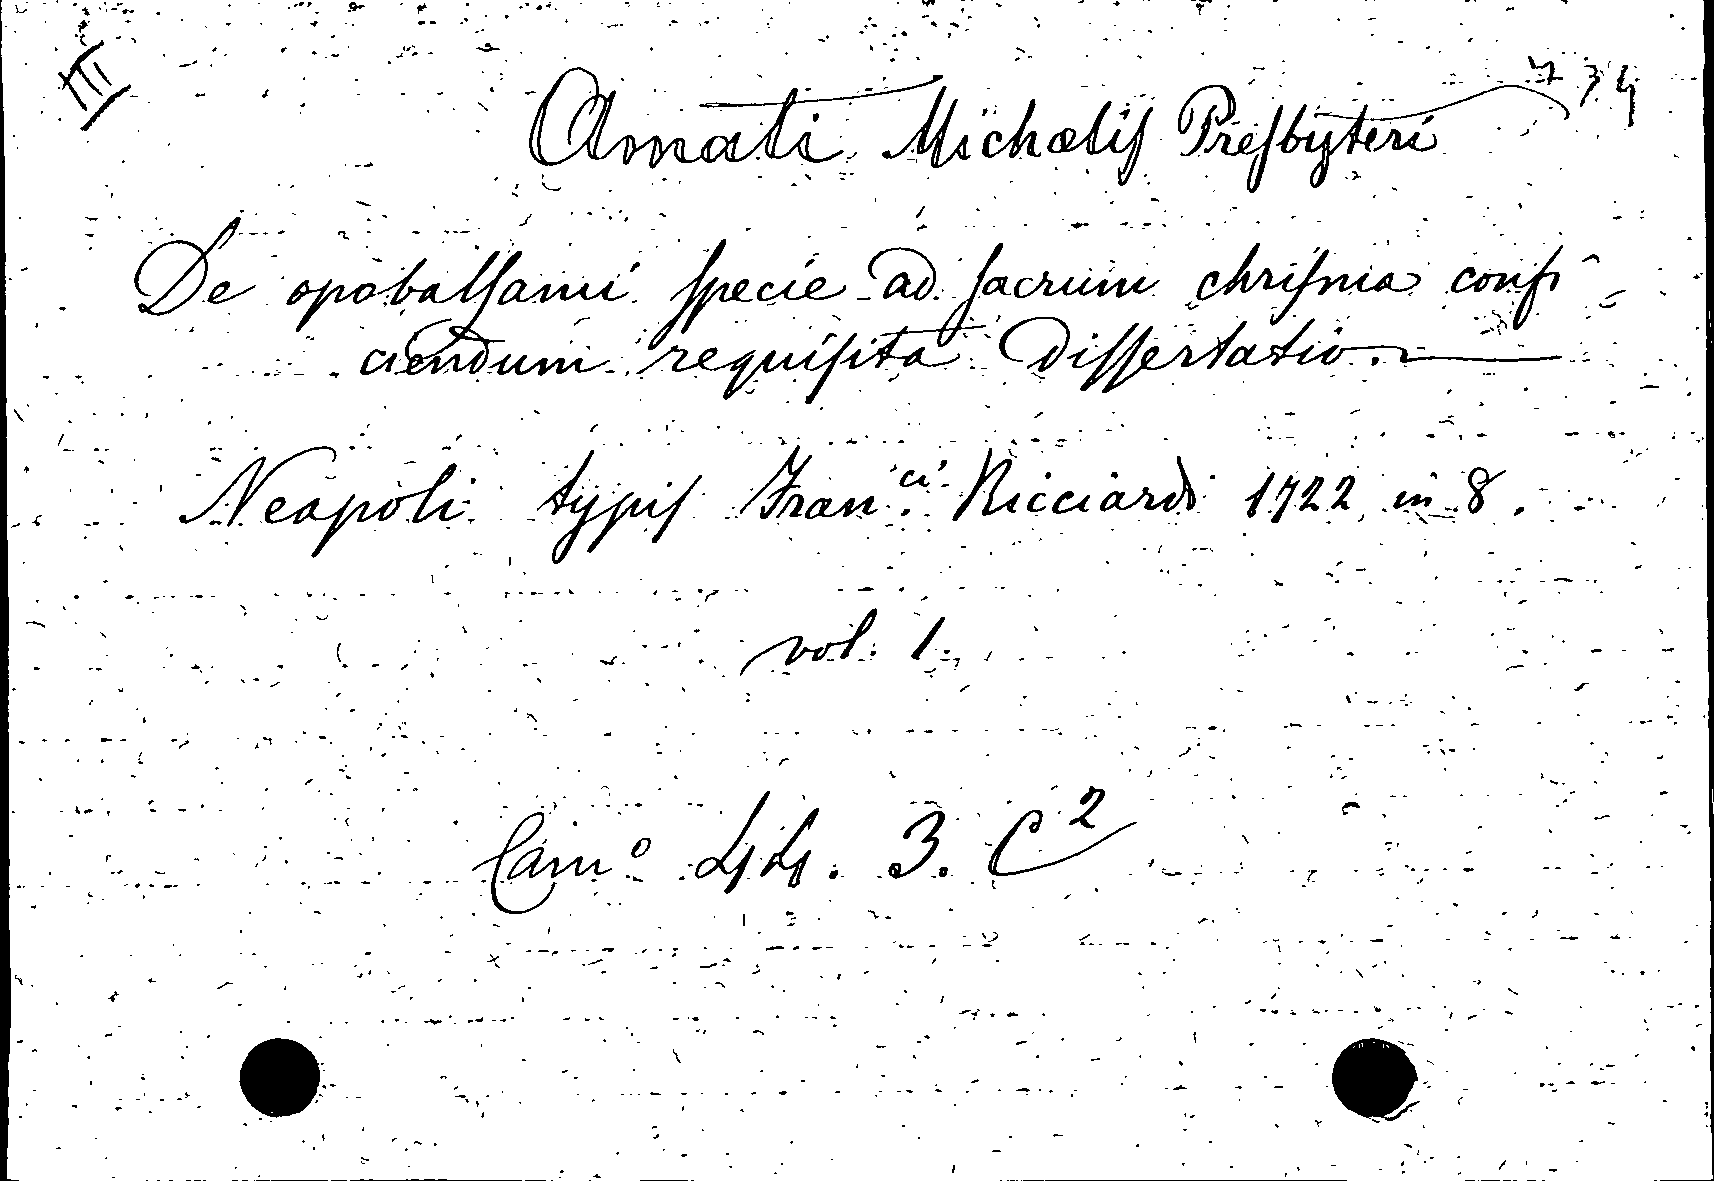 III
734
Amati Michælis Presbyteri
De opobalsami specie ad sacrum chrisma confi-
ciendum requisita Dissertatio.
Neapoli typis Fran.ci Ricciardi 1722 in 8.
vol. 1.
Cam.o 3. C2